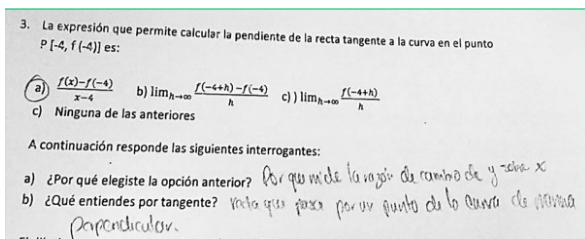 3. La expresión que permite calcular la pendiente de la recta tangente a la curva en el punto
P [-4, f (-4)] es:
a) f(x)−f(−4)/x−4 b) lim h→∞ f(−4+h)−f(−4)/h c) ) lim h→∞ f(−4+h)/h
c) Ninguna de las anteriores
A continuación responde las siguientes interrogantes:
a) ¿Por qué elegiste la opción anterior? Por que mide la razón de cambio de y sobre x
b) ¿Qué entiendes por tangente? recta que pasa por un punto de la curva de manera
perpendicular.